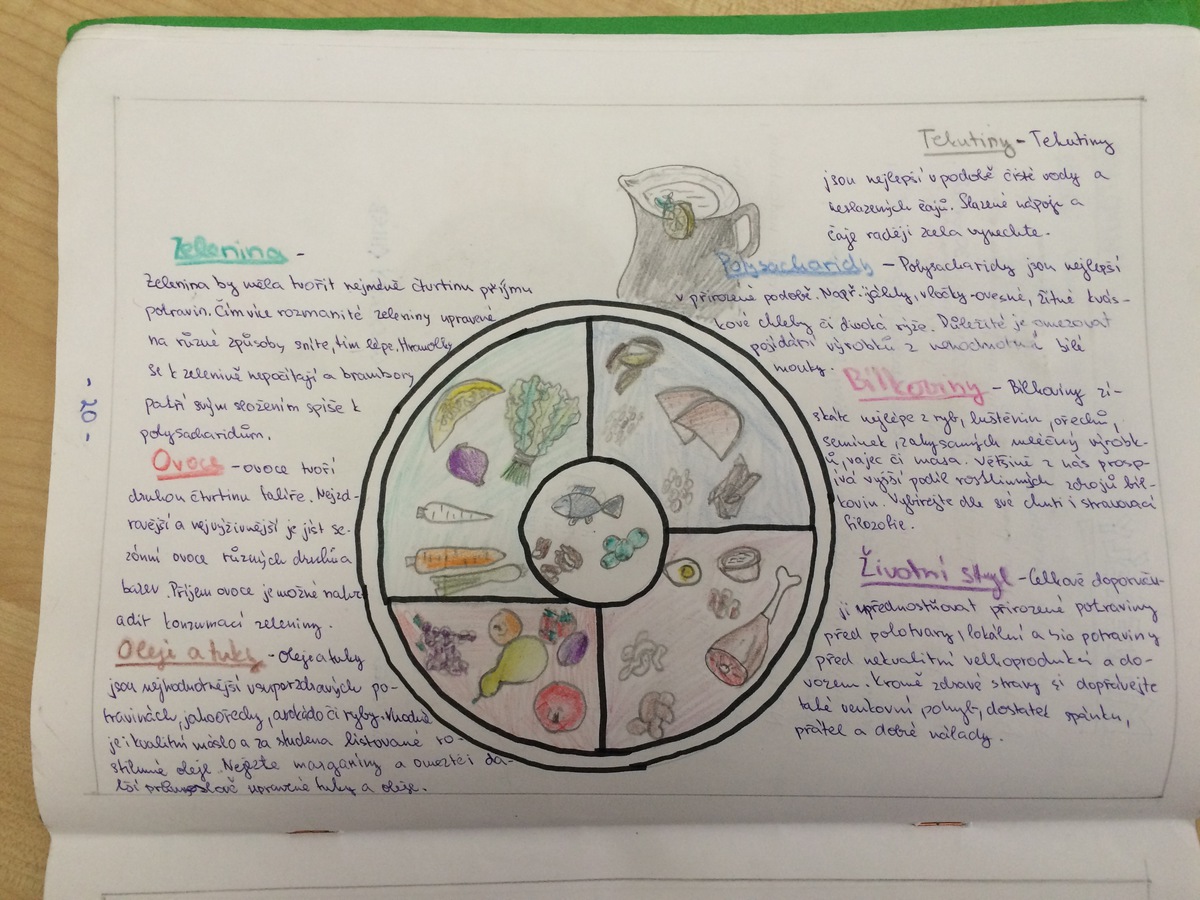 Zelenina -
Zelenina by měla tvořit nejméně čtvrtinu příjmu
potravin. Čím více rozmanité zeleniny upravené
na různé způsoby sníte, tím lépe. Hranolky
se k zelenině nepočítají a brambory
patří svým složením spíše k
polysacharidům.
Ovoce - ovoce tvoří
druhou čtvrtinu talíře. Nejzd-
ravější a nejvýživnější je jíst se-
zónní ovoce různých druhů a
barev. Příjem ovoce je možné nahr-
adit konzumací zeleniny.
Oleje a tuky - Oleje a tuky
jsou nejhodnotnější v superzdravých po-
travinách, jako ořechy, avokádo či ryby. Vhodné
je i kvalitní máslo a za studena lisované ro-
stlinné oleje. Nejezte margaríny a omezte i da-
lší průmyslově upravené tuky a oleje.
- 20 -
Tekutiny - Tekutiny
jsou nejlepší v podobě čisté vody a
neslazených čajů. Slazené nápoje a
čaje raději zcela vynechte.
Polysacharidy - Polysacharidy jsou nejlepší
v přirozené podobě. Např. jáhly, vločky-ovesné, žitné kvás-
kové chleby či divoká rýže. Důležité je omezovat
pojídání výrobků z nehodnotné bílé
mouky.
Bílkoviny - Bílkoviny zí-
skáte nejlépe z ryb, luštěnin, ořechů,
semínek, zakysaných mléčný výrobk-
ů, vajec či masa. Většině z nás prosp-
ívá vyšší podíl rostlinných zdrojů bíl-
kovin. Vybírejte dle své chuti i stravovací
filozofie.
Životní styl - Celkově doporuču-
ji upřednostňovat přirozené potraviny
před polotvary, lokální a bio potraviny
před nekvalitní velkoprodukcí a do-
vozem. Kromě zdravé stravy si dopřávejte
také venkovní pohyb, dostatek spánku,
přátel a dobré nálady.